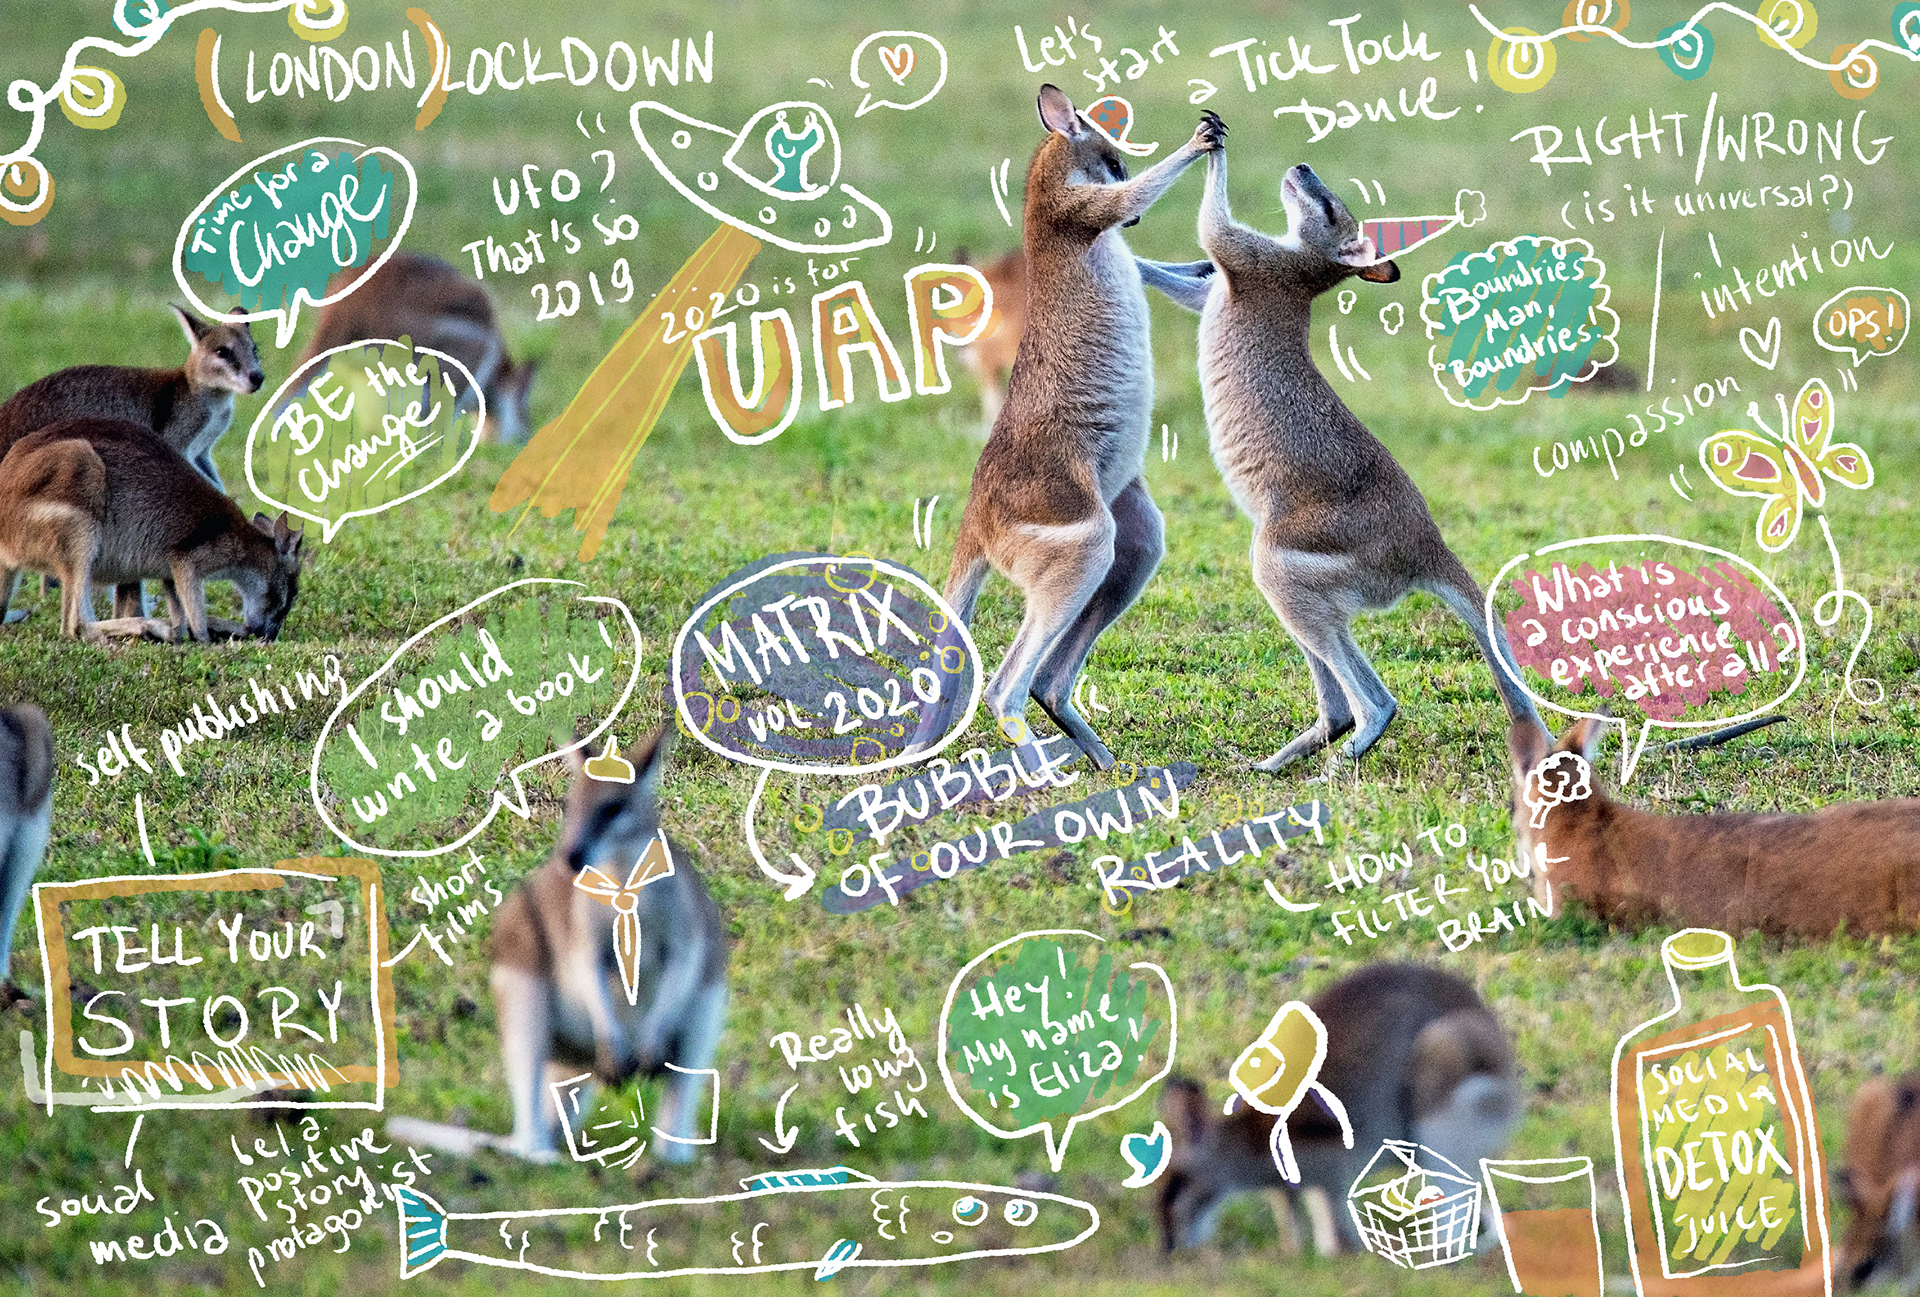 (LONDON) LOCKDOWN
Let's
start
a Tick Tock
Dance!
Time for a
Change
UFO?
That's so
2019
2020 is for
UAP
RIGHT/WRONG
(is it universal?)
intention
Boundries
Man,
Boundries!
OPS!
compassion
BE the
change!
What is
a conscious
experience
after all?
self publishing
I should
write a book!
MATRIX
VOL. 2020
BUBBLE
OF OUR OWN
REALITY
HOW TO
FILTER YOUR
BRAIN
short
films
TELL YOUR
STORY
Really
long
fish
Hey!
My name
is Eliza!
social
media
be! a
positive
story
protagonist
SOCIAL
MEDIA
DETOX
JUICE